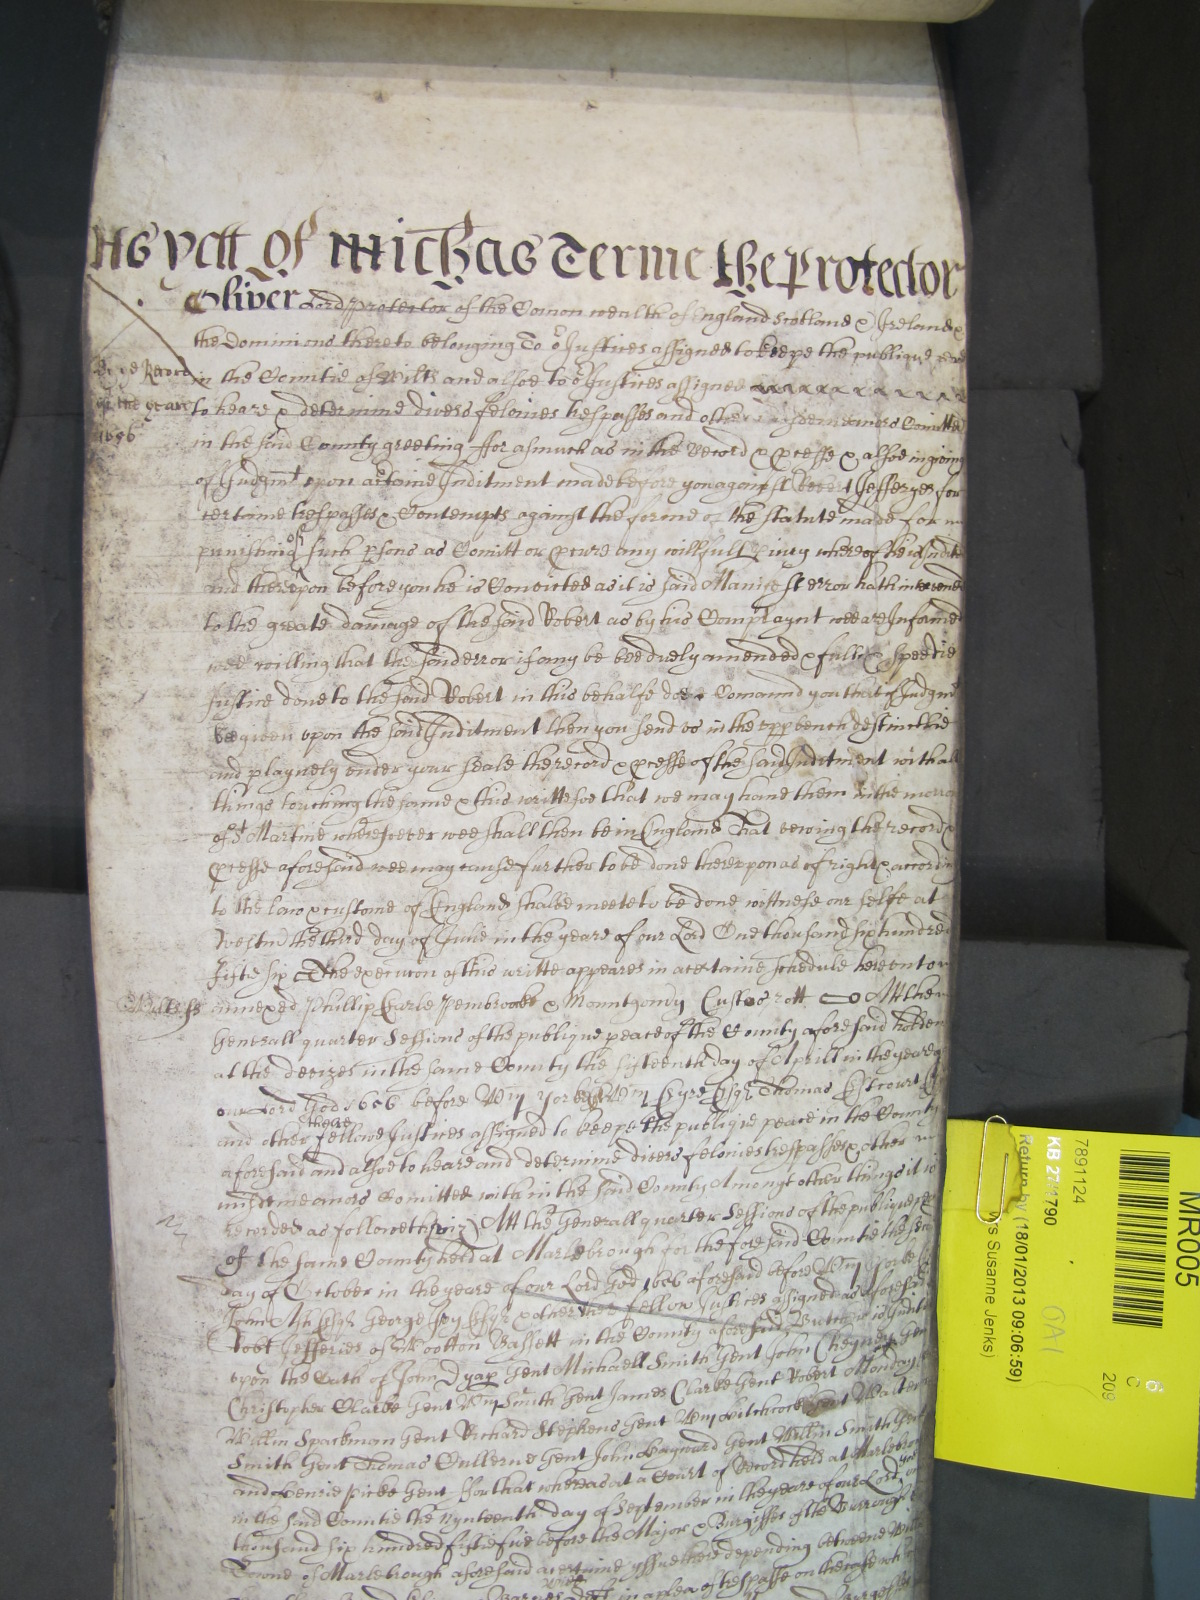 As yett of Michas Terme the Protector
Oliver Lord Protector of the Comon wealth of England Scotland & Ireland &
the Dominions thereto belonging To or Justices assigned to keepe the publique peace
in the Countie of Wilts and alsoe to or Justices assigned
to heare & determine divers felonies trespasses and other misdemeanors Comitted
in the said County greeting ffor asmuch as in the Record & pcesse & alsoe in giving
of Judgmt upon a certaine Inditment made before you against Robert Jefferyes for
certaine trespasses & Contempts against the forme of the statute made for
punishing of such psons as Comitt or pcure any willfull piury whereof he is Indited
and thereupon before you he is Convicted as it is said Manifest error hath intervened
to the greate damage of the said Robert as by his Complaynt wee are Informed
wee willing that the said error if any be bee duely amended & full & speedie
Justice done to the said Robert in this behalfe doe Comaund you that if Judgmt
bee given upon the said Inditment then you send us in the upp bench destinctlie
and playnely under your seale the record & pcesse of the said Inditment with all
things touching the same & this writt soe that we may have them in the morrow
of St Martine wheresoever wee shall then be in England That vewing the record &
pcesse aforesaid wee may cause further to be done thereupon as of right & according
to the law & custome of England shalbe meete to be done wittnese our selfe at
Westmr the third day of Julie in the yeare of our Lord One thousand six hundred
fiftie six The execucon of this writte appeares in a certaine schedule hereunto
annexed Phillip Earle Pembrooke & Mountgomry Custos rott Att the
Generall quarter Sessions of the publique peace of the County aforesaid holden
at the devizes in the same County the fifteenth day of Aprill in the yeare of
our Lord God 1656 before Wm Yorke Wm Eyre Esqr Thomas Estcourt
and other theire fellowe Justices assigned to keepe the publique peace in the County
aforesaid and alsoe to heare and determine divers felonies trespasses & other
misdemeanors Comitted with in the said County Amongt other things it is
recorded as followeth vizt Att the Generall quarter Sessions of the publique peace
of the same County held at Marlebrough for the foresaid Countie the
day of October in the yeare of our Lord God 1656 aforesaid before Wm Yorke
John Ash Esqr George Joy Esqr & other their fellow Justices assigned as aforesaid
Robt Jefferies of Wootton Bassett in the County aforesaid Butcher is Indited
upon the Oath of John Dyar Gent Michaell Smith Gent John Cheyney Gent
Christopher Clarke Gent Wm Smith Gent James Clarke Gent Robert Monday
Willm Spackman Gent Richard Stephens Gent Wm Hitchcock Gent Walter
Smith Gent Thomas Cullerne Gent John Hayward Gent Willm Smith Gent
and Henrie Picke Gent ffor that whereas at a Court of Record held at Marlebrough
in the said Countie the Nynteenth day of September in the yeare of our Lord
thousand six hundred fiftie five before the Major & Burgisses of the Burrough
Towne of Marlebrough aforesaid a certaine yssue there depending betweene
in a plea of trespasse on the case
Record
of the yeare
1656
MR005
7891124
KB 27/1790
Return by (18/01/2013 09:06:59)
Susanne Jenks)
6
C
209